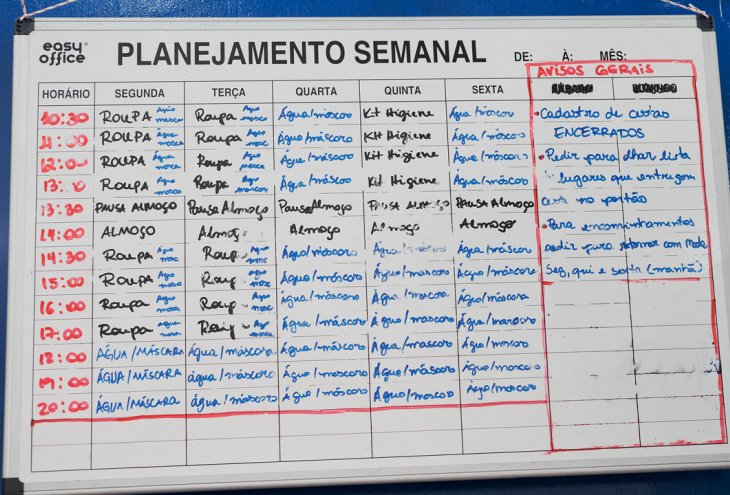 easy office
PLANEJAMENTO SEMANAL
DE: À: MÊS:
AVISOS GERAIS
HORÁRIO SEGUNDA TERÇA QUARTA QUINTA SEXTA
10:30 ROUPA Água/máscara Roupa Água/máscara Água/máscara Kit Higiene Água/máscara
11:00 ROUPA Água/máscara Roupa Água/máscara Água/máscara Kit Higiene Água/máscara
12:00 ROUPA Água/máscara Roupa Água/máscara Água/máscara Kit Higiene Água/máscara
13: ROUPA Água/máscara Roupa Água/máscara Água/máscara Kit Higiene Água/máscara
13:30 PAUSA ALMOÇO Pausa Almoço Pausa Almoço PAUSA ALMOÇO PAUSA ALMOÇO
14:00 ALMOÇO Almoço ALMOÇO Almoço ALMOÇO
14:30 ROUPA Água/masc Roup Água/masc Água/máscara Água/máscara Água/máscara
15:00 ROUPA Roup Água/máscara Água/máscara Água/máscara
16:00 Roupa Roup Água/máscara Água/máscara Água/máscara
17:00 Roupa Roup Água/máscara Água/máscara Água/máscara
18:00 ÁGUA/MÁSCARA Água/máscara Água/máscara Água/máscara Água/máscara
19:00 ÁGUA/MÁSCARA água/máscara Água/máscara Água/máscara Água/máscara
20:00 ÁGUA/MÁSCARA água/máscara Água/máscara Água/máscara Água/máscara
• Cadastro de cestas
ENCERRADOS
• Pedir para olhar lista
lugares que entregam
no portão
• Para encaminhamentos
pedir para retornar com
Seg, qui e sexta (manhã)